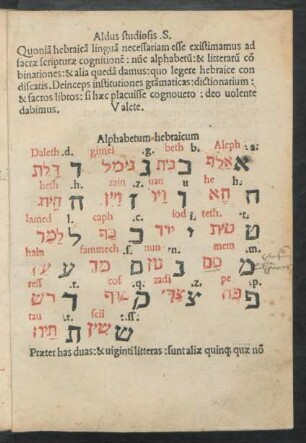 Aldus studiosis .S.
Quoniã hebraicã linguã necessariam esse existimamus ad
sacræ scripturæ cognitionẽ: nũc alphabetũ: & litterarũ cõ
binationes: & alia quedã damus: quo legere hebraice con
discatis. Deinceps institutiones grãmaticas: dictionarium:
& sactos libros: si hæc placuisse cognouero: deo uolente
dabimus. Valete.
Alphabetum hebraicum
Daleth .d. gimel .g. beth .b. Aleph .a:
א אלף ב בית ג גימל ד דלת
heth .h. zain .z. uau .u he .h:
ה הא ו ויו ז זיין ח חית
lamed .l. caph .c. iod .i. teth. .t:
ט טית י יוד כ כף ל למד
hain sammech .s. nun .n. mem .m.
מ מם נ נון ס סמך ע עין
ress .r. cof .q. zadi .z. pe .p.
פ פה צ צדי ק קוף ר ריש
tau .t. scil .ss:
ש שין ת תיו
Præter has duas: & uiginti litteras: sunt aliæ quinq; quæ nõ